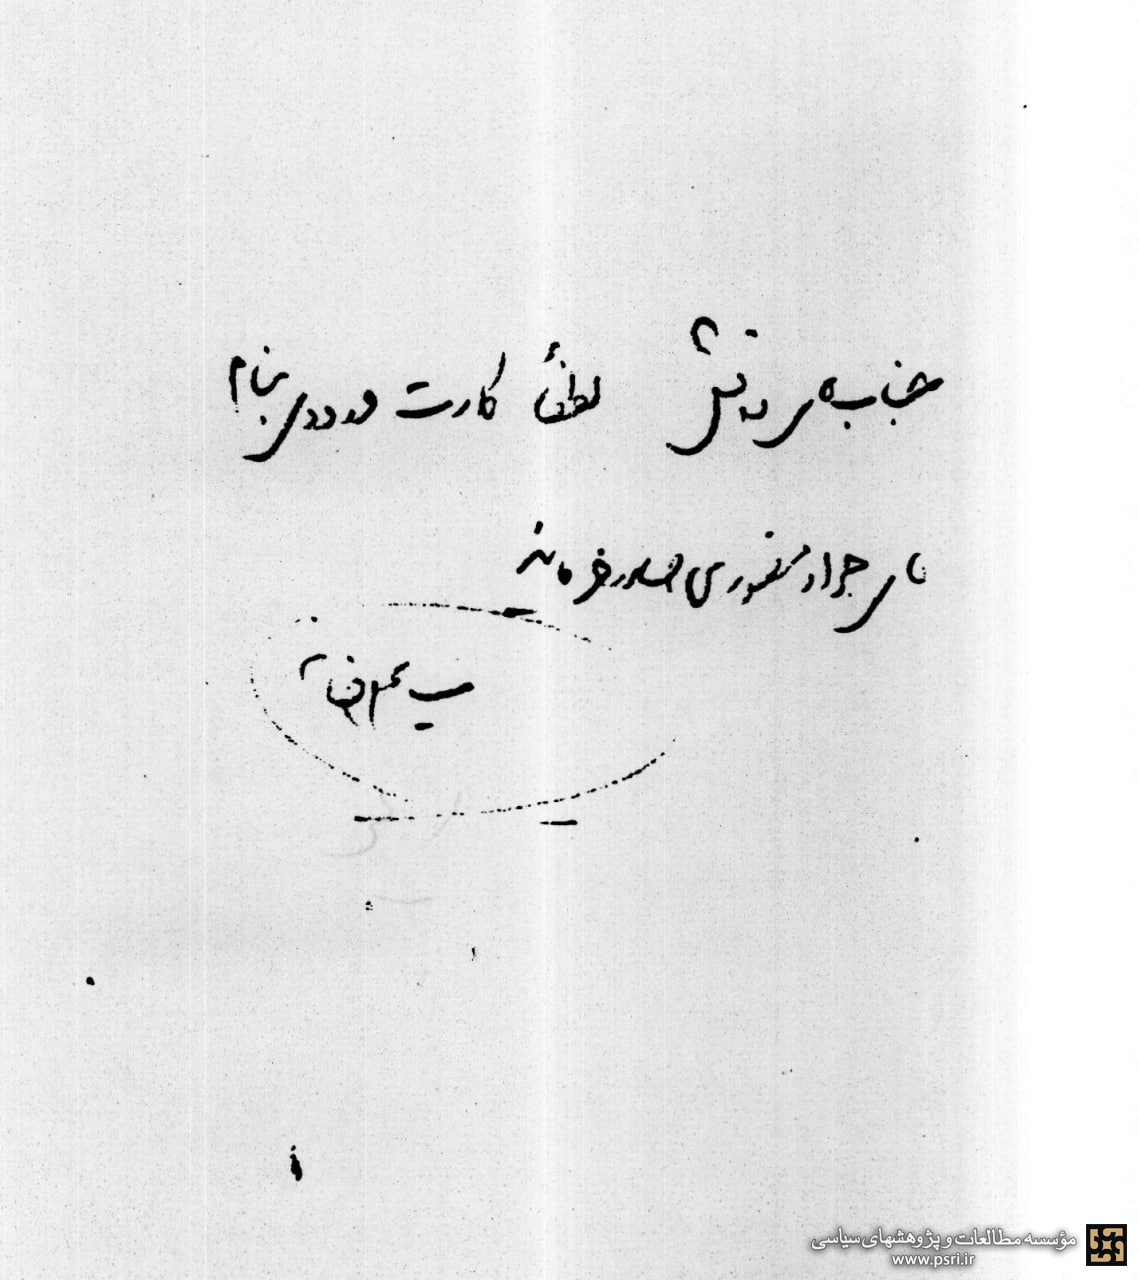 جناب آقای دانش لطفاً کارت ورودی بنام
آقای جواد منصوری صادر فرمائید
سید
مؤسسه مطالعات و پژوهشهای سیاسی
www.psri.ir